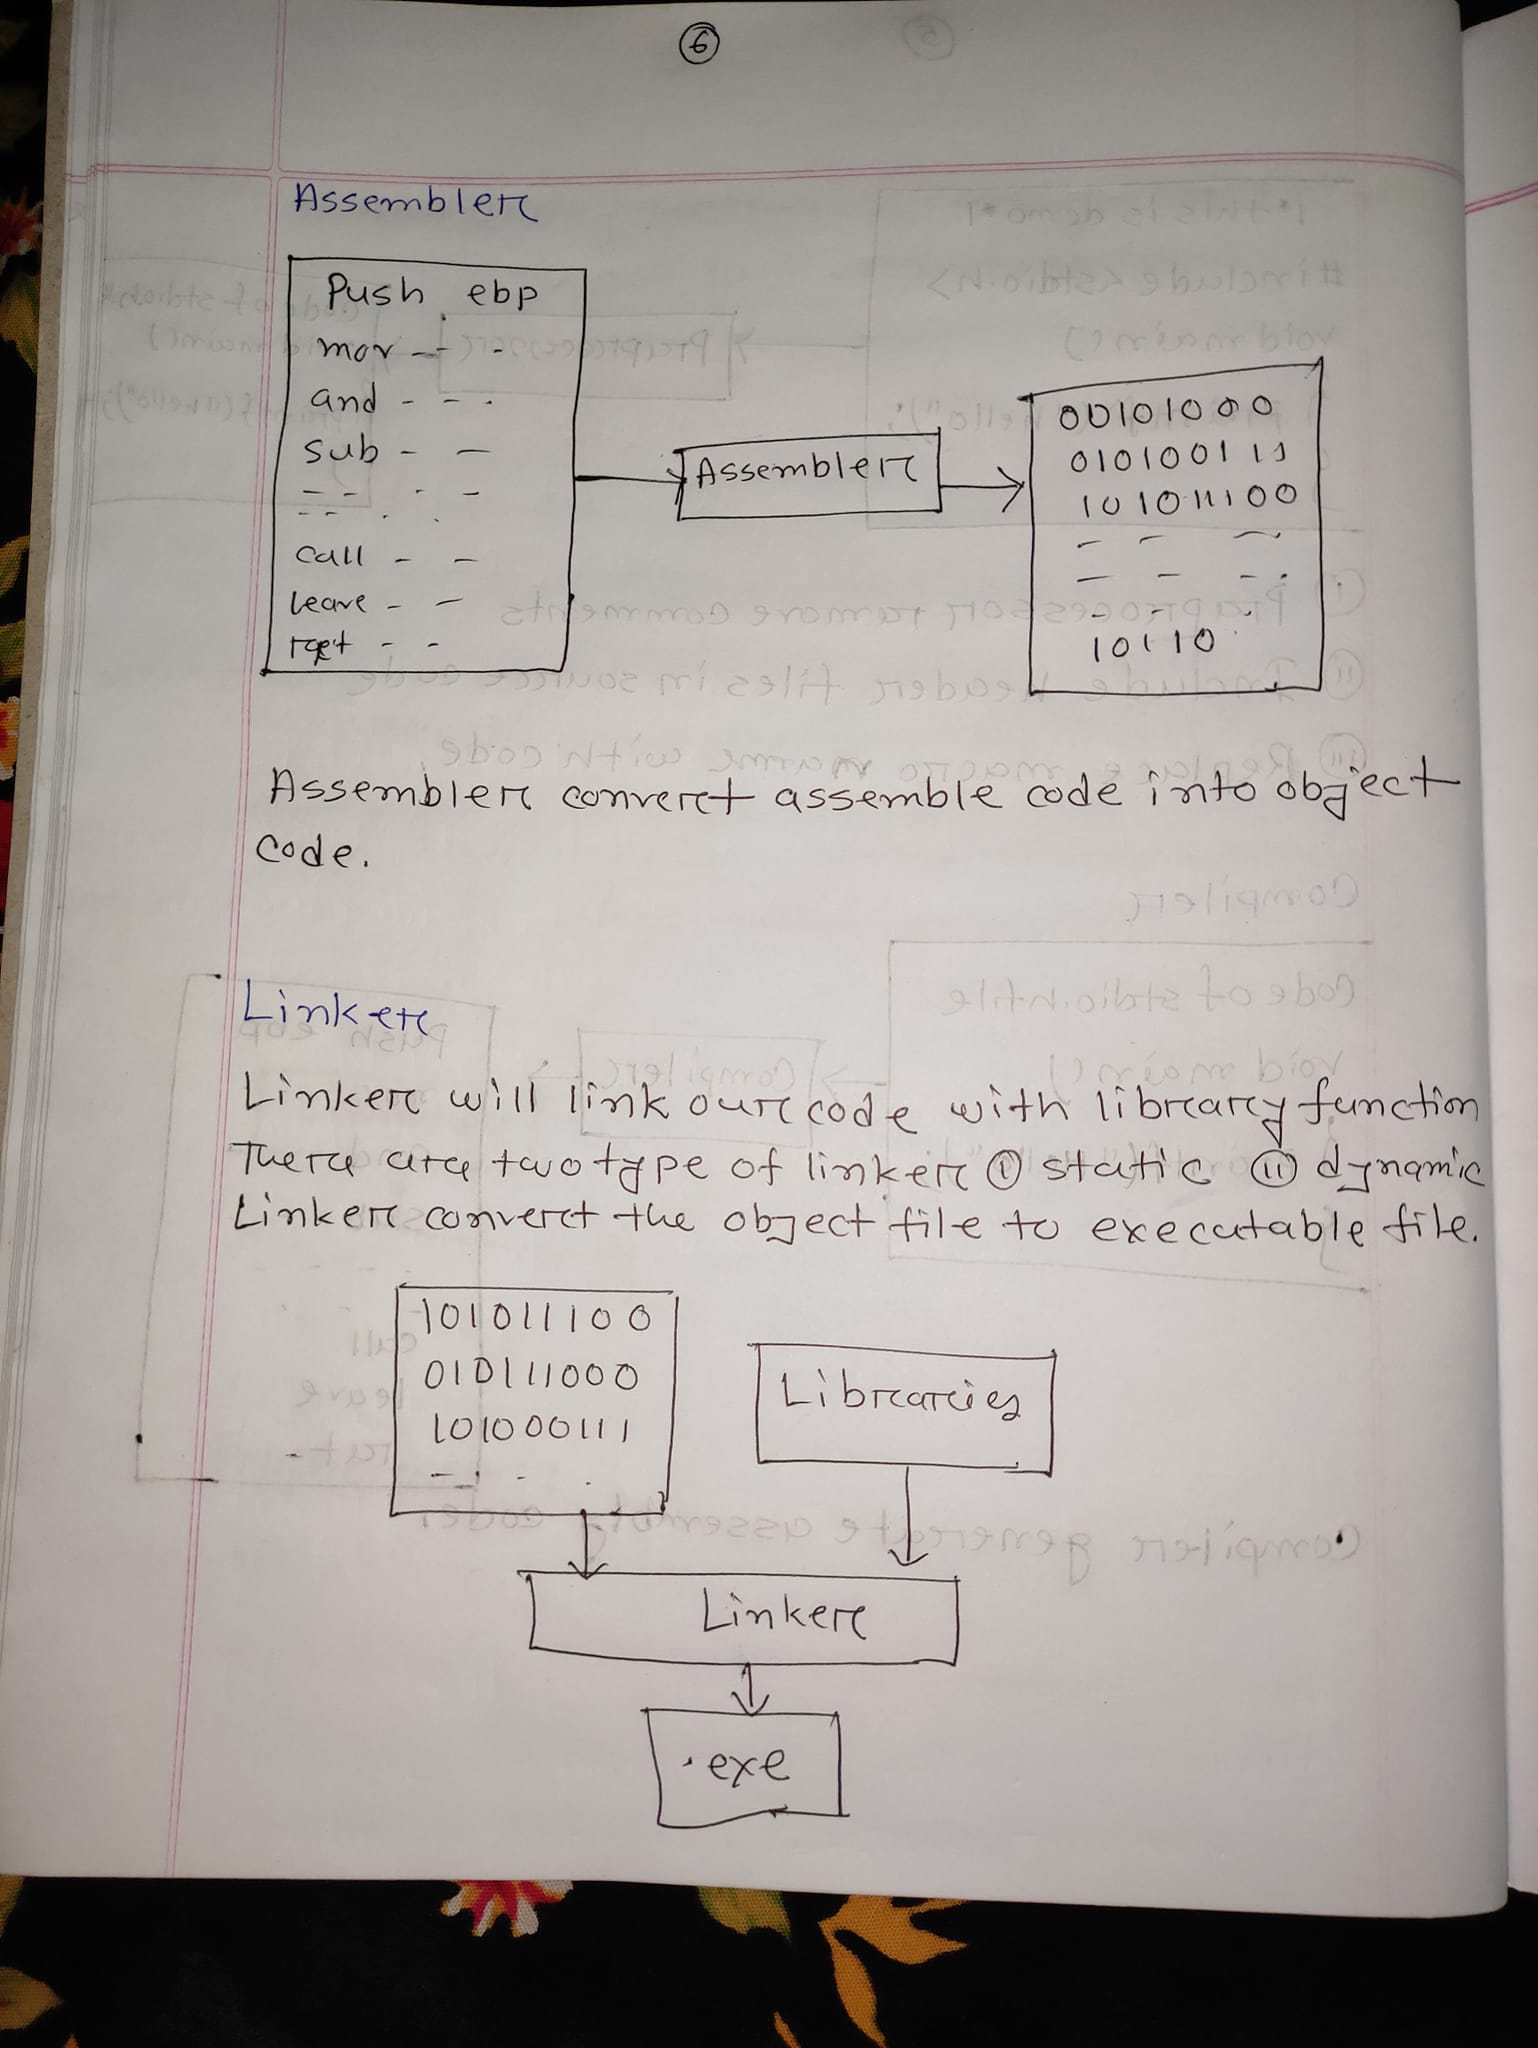 6
Assembler
Push ebp
mov - - -
and - - -
sub - -
- - - -
- - - -
call - -
leave - -
ret - -
Assembler
00101000
010100111
101011100
- - -
- - -
- - -
10110
Assembler convert assemble code into object
code.
Linker
Linker will link our code with library function
There are two type of linker (i) static (ii) dynamic
Linker convert the object file to executable file.
101011100
010111000
101000111
- - - -
Libraries
Linker
.exe